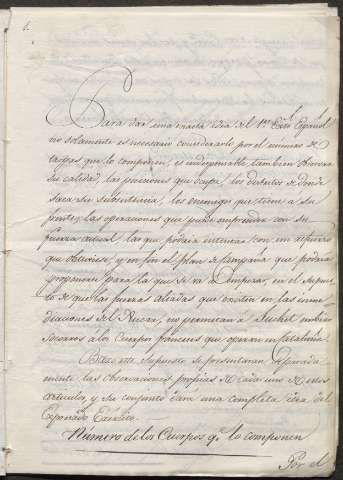 1.
Para dar una exacta idea del 1er Exto Español
no solamente es necesario considerarlo por el numero de
tropas que lo componen, es indispensable tambien observar
su calidad, las posiciones que ocupa, los distritos de donde
saca su subsistencia, los enemigos que tiene a su
frente, las operaciones que puede emprender con su
fuerza actual, las que podria intentar con un refuerzo
que obtuviese, y en fin el plan de campaña que podria
proponerse para la que se va á empezar, en el supues
to de que las fuerzas aliadas que existen en las inme
diaciones del Jucar, no permitan á Suchet embiar
socorros a los Cuerpos franceses que operan en Cataluña.
Bajo este supuesto se presentaran separada
mente las observaciones propias de cada uno de estos
articulos, y su conjunto dará una completa idea del
expresado Exército.
Número de los Cuerpos qe lo componen
Por el